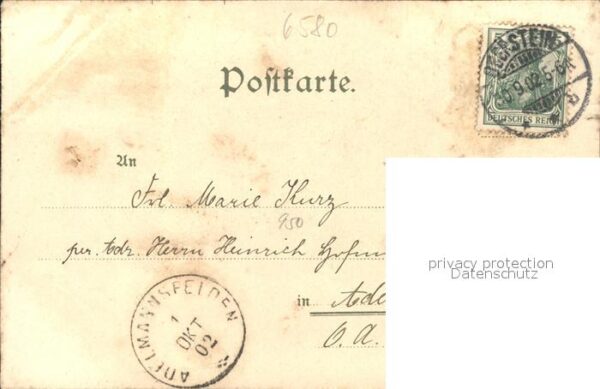 6580
Postkarte.
OBERSTEIN
9.02.5-6N
a
DEUTSCHES REICH
An
Frl. Marie Kurz
950
per. Adr. Herrn Heinrich Hofm
in Ade
O. A.
ADELMANNSFELDEN
1
OKT
02
privacy protection
Datenschutz